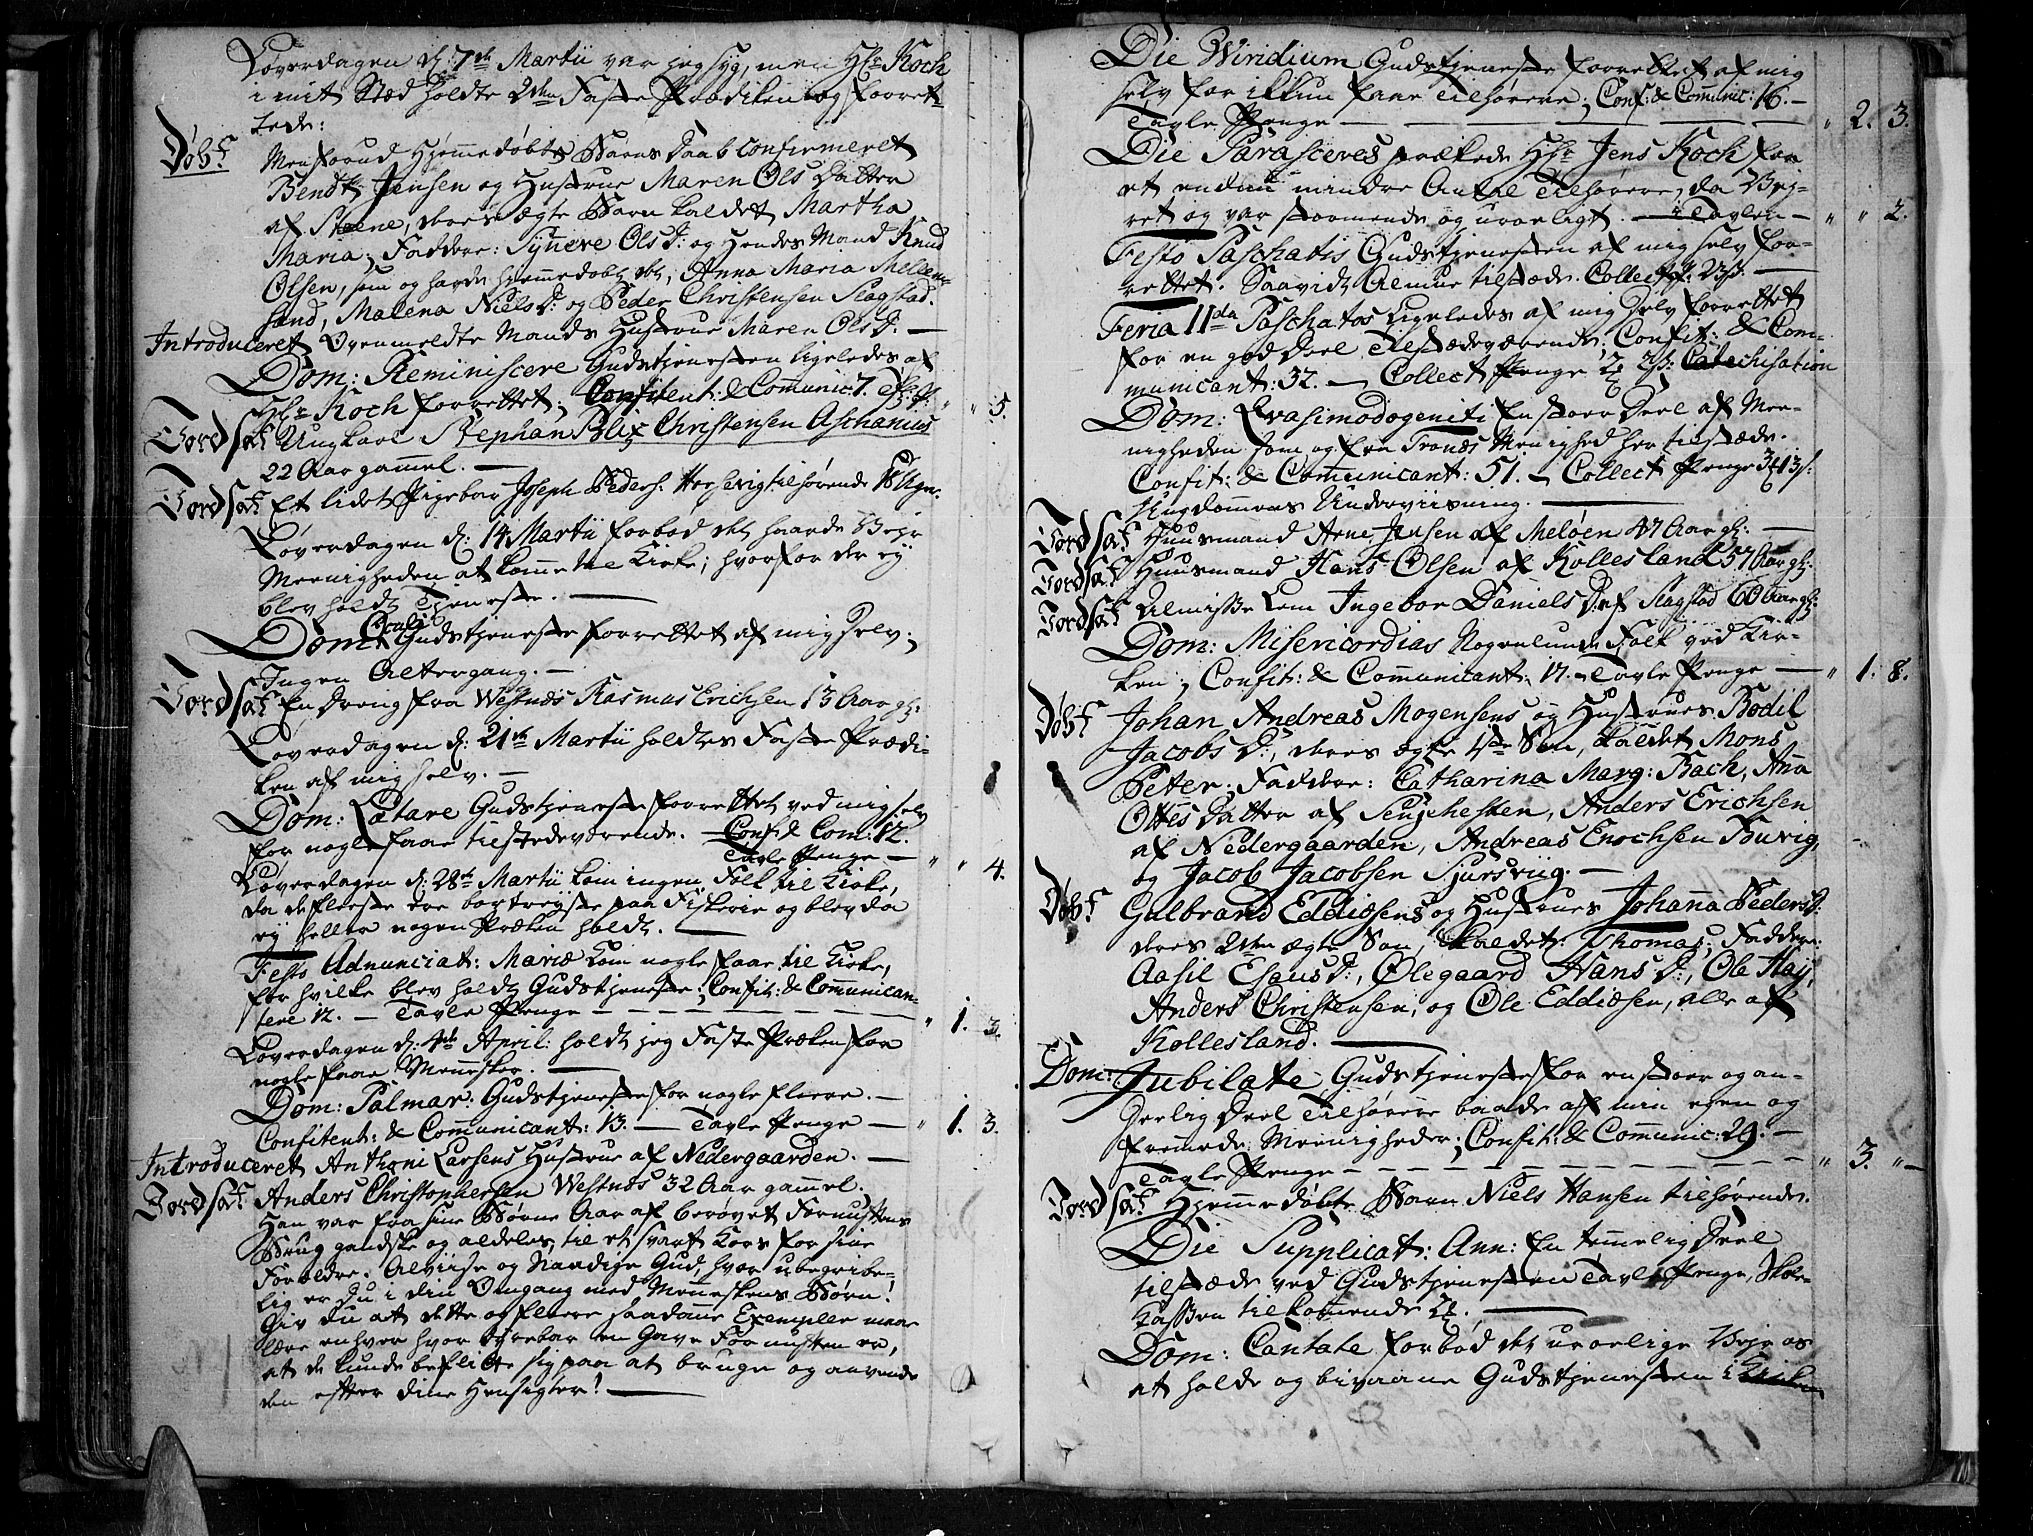 Løverdagen d: 7de Martii var jeg syg, men Hr: Koch
i mit Stæd holdte 2den Faste Prædiken og forret-
tede:
Døbt
Men forud Hjemmedøbte Barns Daab confirmeret
Bendt Jensen og Hustrue Maren Ols Datter
af Steene, deres ægte Barn kaldet Martha
Maria; Faddere: Synøve Ols D: og Hendes Mand Knud
Olsen, som og havde hjemmedøbt det; Anna Maria Mellem-
sand, Malena Niels D: og Peder Christensen Slagstad.
Introduceret Ovenmeldte Mands Hustrue Maren Ols D: —
Dom: Reminiscere Gudstjenesten ligeledes af
Hr: Koch forrettet; Confitent: & Communic: 7. " " 5.
Jordsat Ungkarl Stephan Blix Christensen Aschanius
22 Aar gammel. —
Jordsat Et lidet Pigebar Joseph Peders: tilhørende 18 Ugr.
Løverdagen d: 14 Martii forbød det haarde Vejr
Meenigheden at komme til Kirke; hvorfor der ej
blev holdt Tjeneste. —
Dom: Oculi Gudstjeneste forrettet af mig selv;
Ingen Altergang. —
Jordsat En Dreng fra Westnæs Rasmus Erichsen 13 Aar gl:
Løverdagen d: 21de Martii holdtes Faste Prædi-
ken af mig selv. —
Dom: Lætare Gudstjeneste forrettet ved mig selv
for nogle faae tilstedeværende. — Conf: & Com: 12.
Tavle Penge — " " 4.
Løverdagen d: 28de Martii kom ingen Folk til Kirke,
da de fleeste ere bortrejste paa Fiskerie og blev da
ej heller nogen Præken holdt. —
Festo Adnunciat: Mariæ kom nogle faae til Kirke,
for hvilke blev holdt Gudstjeneste; Confit: & Communican-
tere 12. — Tavle Penge — " 1. 3.
Løverdagen d: 4de April: holdt jeg Faste Præken for
nogle faae Mennesker. —
Dom: Palmar: Gudstjeneste for nogle fleere. —
Confitent: & Communicant: 13. — Tavle Penge — " 1. 3.
Introduceret Anthoni Larsens Hustrue af Nedergaarden. —
Jordsat Anders Christophersen Westnæs 32 Aar gammel.
Han var fra sine Børne Aar af berøvet Fornuftens
Brug gandske og aldeles, til et svart Kors for sine
Forældre. Alviise og Naadige Gud, hvor ubegribe-
lig er Du i din Omgang med Menneskens Børn!
Giv Du at dette og fleere saadanne Exempler maae
lære enhver hvor dyrebar en Gave Fornuften er,
at de kunde beflitte sig paa at bruge og anvende
den efter dine Hensigter! —
Die Viridium Gudstjeneste forrettet af mig
selv for ikkun faae Tilhørere; Conf: & Comunic: 16. —
Tavle Penge — " 2. 3.
Die Parasceves prækede Hr: Jens Koch for
et endnu mindre Antal Tilhørere, da Vej-
ret og var stormende og uroeligt. — i Tavlen — " " 2.
Festo Paschatis Gudstjenesten af mig selv for-
rettet. Saavidt Almue tilstæde. Collect 23 —
Feria IIda Paschatos Ligeledes af mig selv forrettet
for en god Deel Tilstædeværende; Confit: & Com-
municant: 32. — Collect Penge Catechisation
Dom: Qvasimodogeniti En stoor Deel af Mee-
nigheden som og fra Tronds Menighed her tilstæde.
Confit: & Communicant: 51. — Collect Penge
Ungdommens Underviisning. —
Jordsat Huusmand Arne Jensen af Meløen 47 Aar gl: —
Jordsat Huusmand Hans Olsen af Kollesland 37 Aar gl:
Jordsat Almisse Lem Ingebor Daniels D: af Slagstad 60 Aar gl:
Dom: Misericordias Nogenlunde Folk ved Kir-
ken; Confit: & Communicant: 17. — Tavle Penge — " 1. 8.
Døbt Johan Andreas Mogensens og Hustrues Bodil
Jacobs D:, deres ægte 4de Søn, kaldet Mons
Peter. Faddere: Catharina Marg: Bach, Anna
Ottes Datter af Senjehesten, Anders Erichsen
af Nedergaarden, Andreas Enochsen Burvig,
og Jacob Jacobsen Sjursviig. —
Døbt Gulbrand Eddiøsens og Hustrues Johanna Peders D:
deres 2den ægte Søn, kaldet: Thomas; Faddere:
Aasil Esaus D:, Olegaard Hans D:, Ole Haij,
Anders Christensen, og Ole Eddiøsen, alle af
Kollesland. —
Dom: Jubilate Gudstjeneste for en stoor og an-
deelig Deel Tilhørere baade af min egen og
fremmede Meenigheder; Confit: & Communic: 29. —
Tavle Penge — " 3. " —
Jordsat Hjemmedøbte Barn Niels Hansen tilhørende.
Die Supplicat: Ann: En temmelig Deel
tilstæde ved Gudstjenesten Tavle Penge, Skole-
Kassen tilkommende —
Dom: Cantate forbød det uroelige Vejr os
at holde og bivaane Gudstjenesten i Kirken